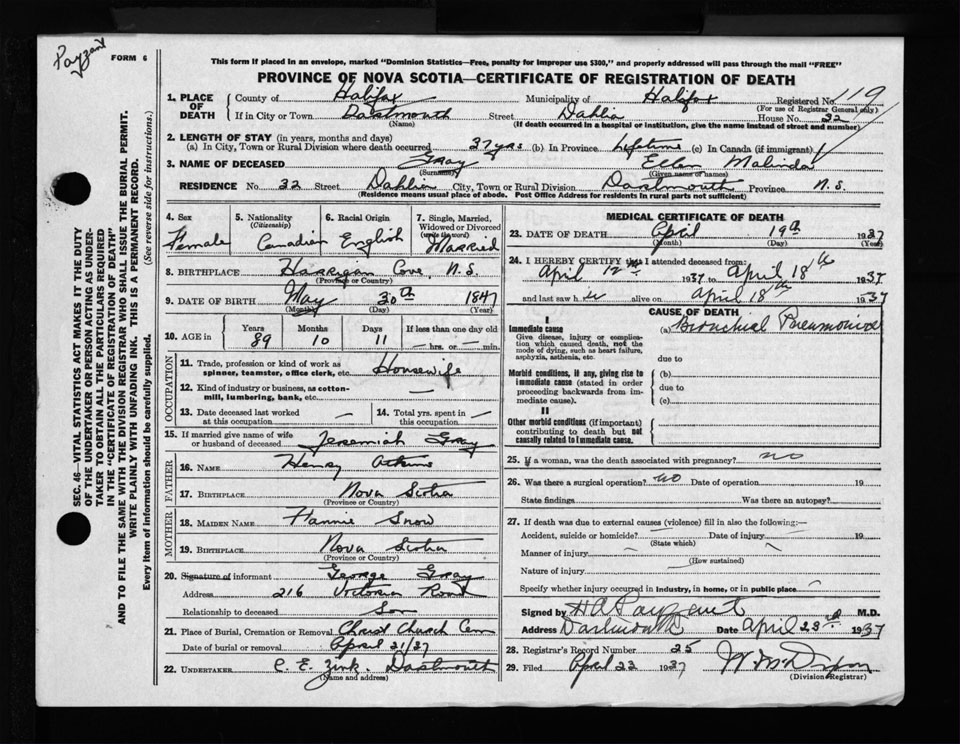 Payzant
FORM 6
This form if placed in an envelope, marked "Dominion Statistics—Free, penalty for improper use $300," and properly addressed will pass through the mail "FREE"
PROVINCE OF NOVA SCOTIA—CERTIFICATE OF REGISTRATION OF DEATH
1. PLACE OF DEATH County of Halifax Municipality of Halifax Registered No. 119
(For use of Registrar General only)
If in City or Town Dartmouth Street Dahlia House No. 32
(Name) (If death occurred in a hospital or institution, give the name instead of street and number)
2. LENGTH OF STAY (in years, months and days)
(a) In City, Town or Rural Division where death occurred 37 yrs (b) In Province Lifetime (c) In Canada (if immigrant)
3. NAME OF DECEASED Gray Ellen Malinda
(Surname) (Given name or names)
RESIDENCE No. 32 Street Dahlia City, Town or Rural Division Dartmouth Province N.S.
(Residence means usual place of abode. Post Office Address for residents in rural parts not sufficient)
4. Sex
Female
5. Nationality
(Citizenship)
Canadian
6. Racial Origin
English
7. Single, Married, Widowed or Divorced
(write the word)
Married
8. BIRTHPLACE Harrigan Cove, N.S.
(Province or Country)
9. DATE OF BIRTH May 30th 1847
(Month) (Day) (Year)
10. AGE in
Years Months Days If less than one day old
89 10 11 hrs. or min.
OCCUPATION
11. Trade, profession or kind of work as spinner, teamster, office clerk, etc. Housewife
12. Kind of industry or business, as cotton-mill, lumbering, bank, etc. —
13. Date deceased last worked at this occupation —
14. Total yrs. spent in this occupation —
15. If married give name of wife or husband of deceased Jeremiah Gray
FATHER
16. NAME Henry Atkins
17. BIRTHPLACE Nova Scotia
(Province or Country)
MOTHER
18. MAIDEN NAME Hannie Snow
19. BIRTHPLACE Nova Scotia
(Province or Country)
20. Signature of informant George Gray
Address 216 Victoria Road
Relationship to deceased Son
21. Place of Burial, Cremation or Removal Christ Church Cem
Date of burial or removal April 21/37
22. UNDERTAKER C. E. Zink. Dartmouth
(Name and address)
MEDICAL CERTIFICATE OF DEATH
23. DATE OF DEATH April 19th 1937
(Month) (Day) (Year)
24. I HEREBY CERTIFY that I attended deceased from:
April 12th 1937 to April 18th 1937
and last saw her alive on April 18th 1937
CAUSE OF DEATH
I
Immediate cause
Give disease, injury or complication which caused death, not the mode of dying, such as heart failure, asphyxia, asthenia, etc.
(a) Bronchial Pneumonia
due to
Morbid conditions, if any, giving rise to immediate cause (stated in order proceeding backwards from immediate cause).
(b)
due to
(c)
II
Other morbid conditions (if important) contributing to death but not causally related to immediate cause.
25. If a woman, was the death associated with pregnancy? no
26. Was there a surgical operation? no Date of operation 19
State findings Was there an autopsy?
27. If death was due to external causes (violence) fill in also the following:—
Accident, suicide or homicide? Date of injury 19
(State which)
Manner of injury
(How sustained)
Nature of injury
Specify whether injury occurred in industry, in home, or in public place
Signed by H A Payzant M.D.
Address Dartmouth Date April 23rd 1937
28. Registrar's Record Number 25
29. Filed April 23 1937
(Division Registrar)
SEC. 46—VITAL STATISTICS ACT MAKES IT THE DUTY
OF THE UNDERTAKER OR PERSON ACTING AS UNDER-
TAKER TO OBTAIN ALL THE PARTICULARS REQUIRED
IN THE "CERTIFICATE OF REGISTRATION OF DEATH"
AND TO FILE THE SAME WITH THE DIVISION REGISTRAR WHO SHALL ISSUE THE BURIAL PERMIT.
WRITE PLAINLY WITH UNFADING INK. THIS IS A PERMANENT RECORD.
Every item of information should be carefully supplied. (See reverse side for instructions.)